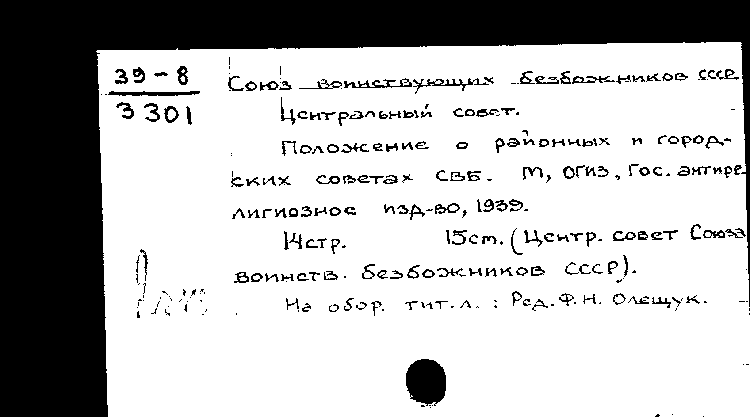 39-8
3301
Союз воинствующих безбожников СССР
Центральный совет.
Положение о районных и город-
ских советах СВБ. М, ОГИЗ, Гос. антире-
лигиозное изд-во, 1939.
14стр. 15см. (Центр. совет Союза
воинств. безбожников СССР).
На обор. тит. л. : Ред. Ф. Н. Олещук.